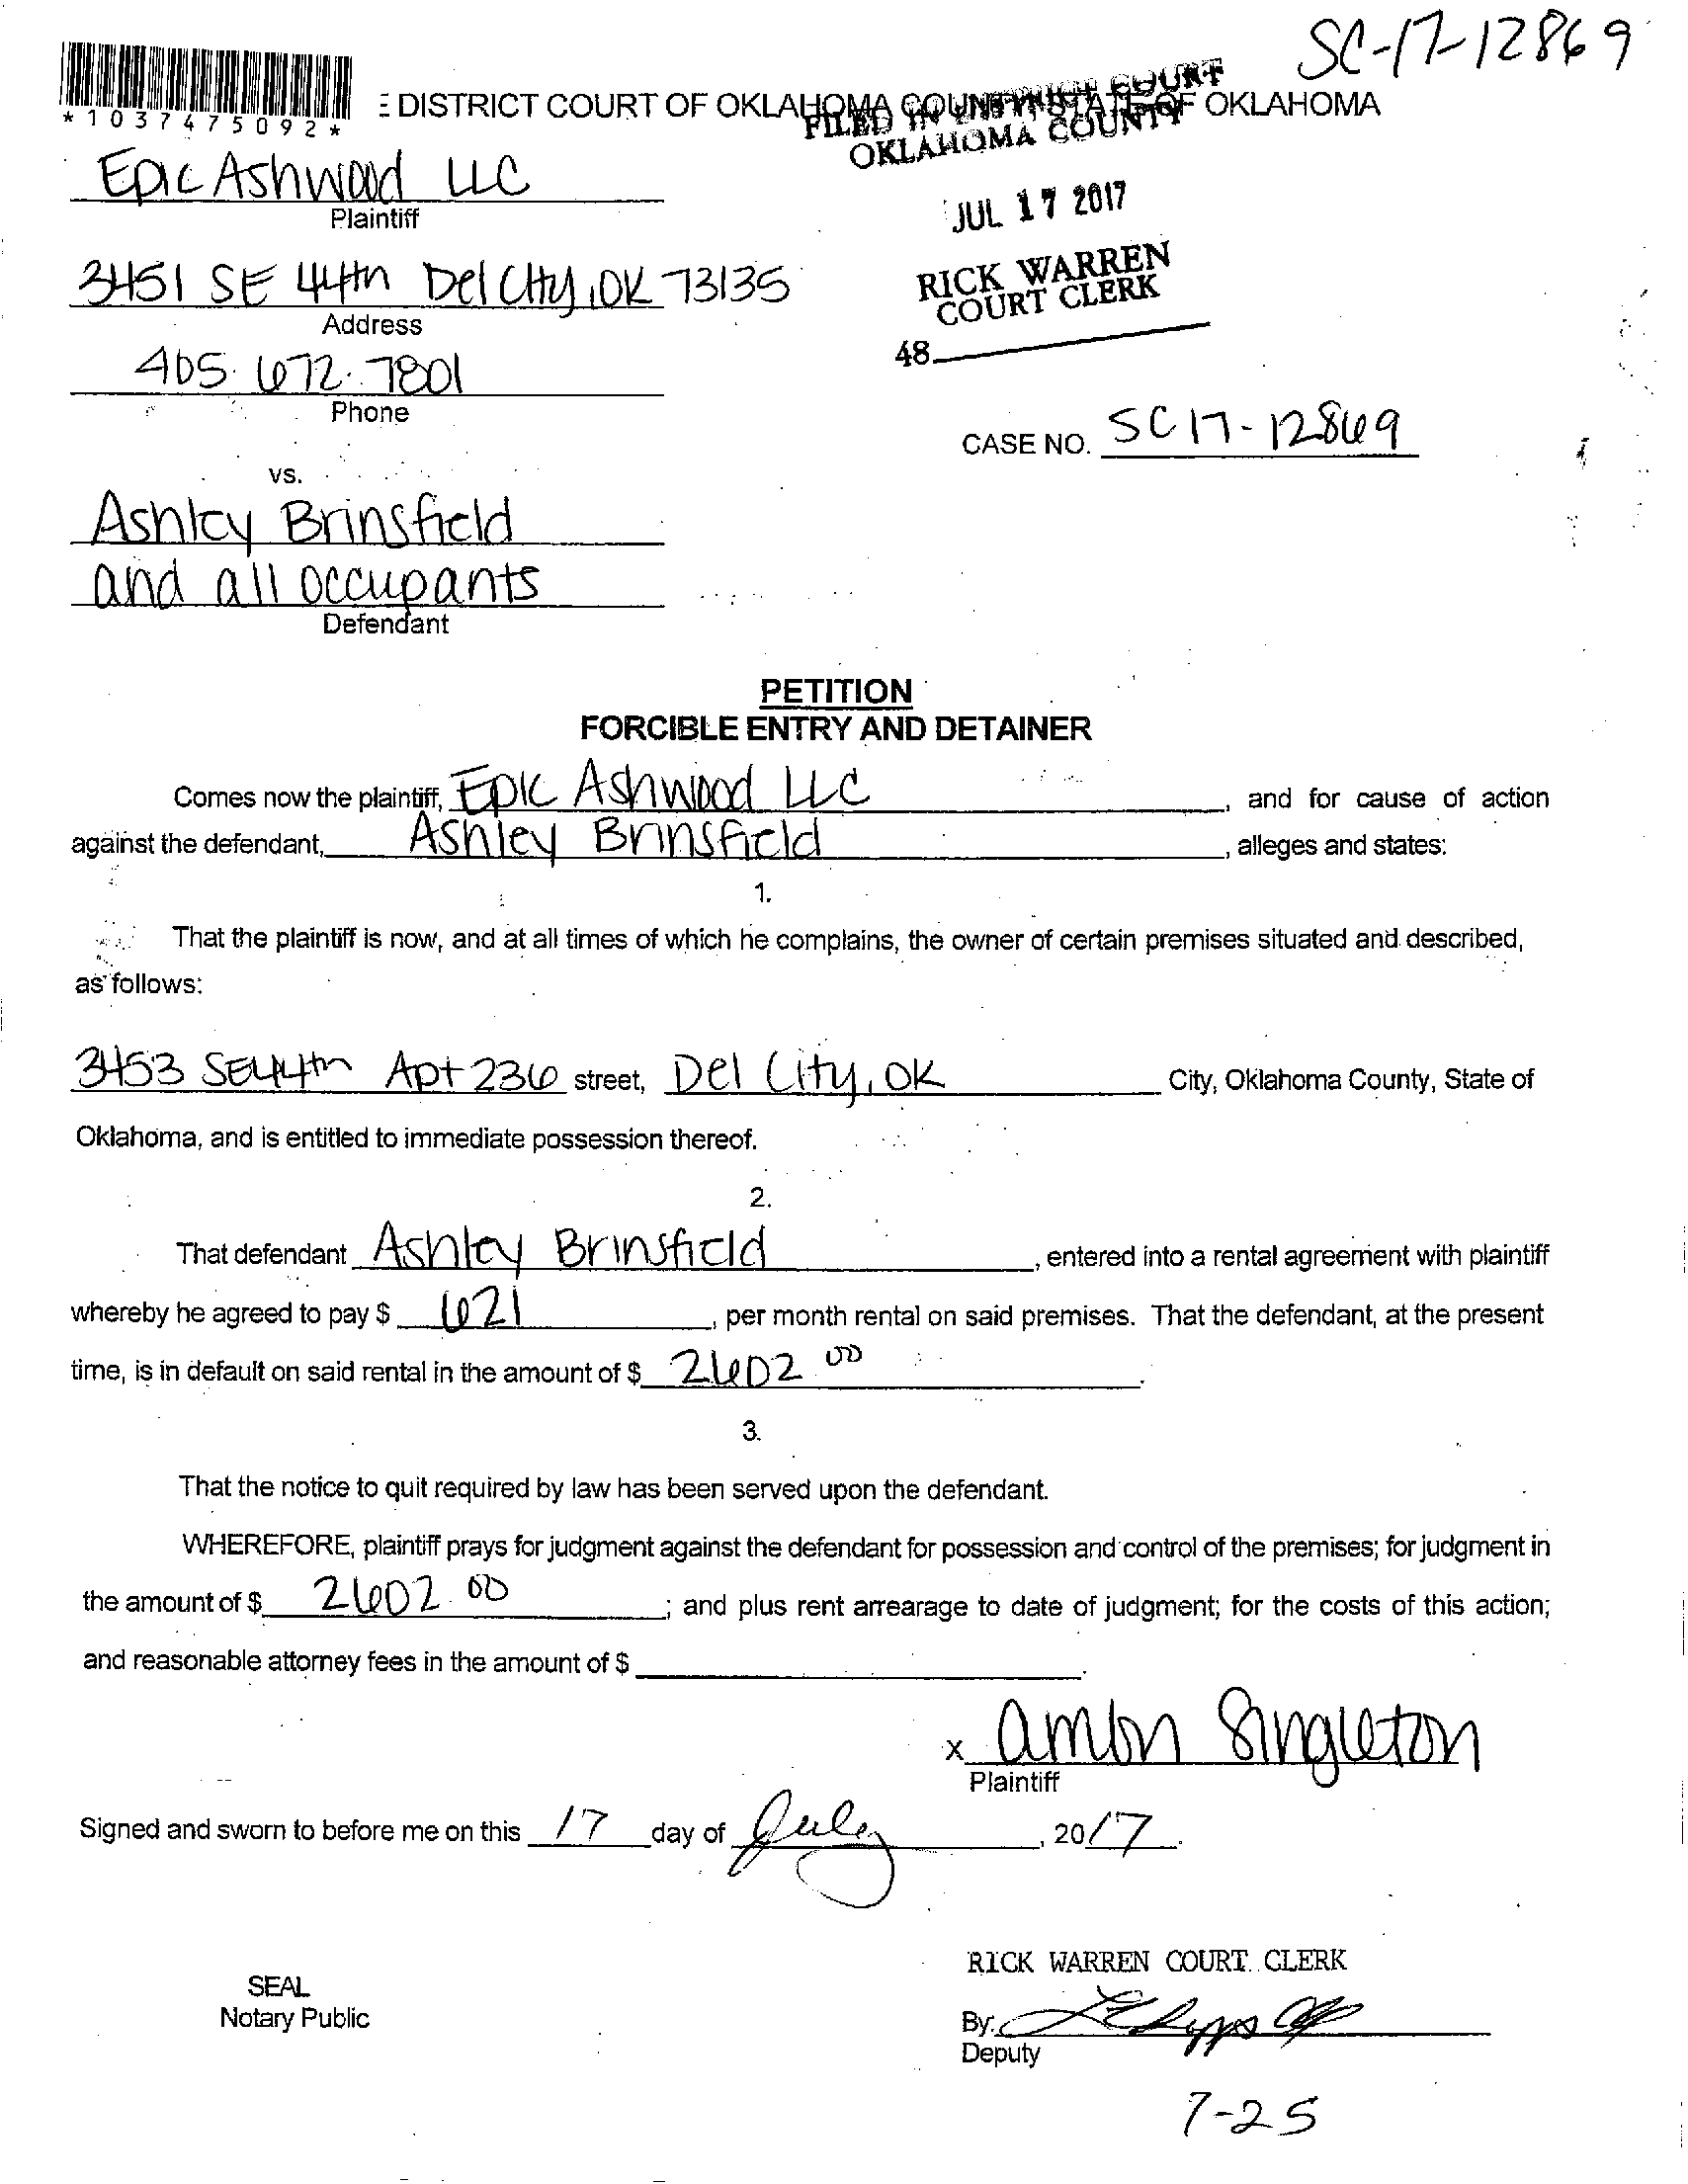 SC-17-12869
*1037475092*
E DISTRICT COURT OF OKLAHOMA COUNTY, STATE OF OKLAHOMA
FILED IN DISTRICT COURT
OKLAHOMA COUNTY
Epic Ashwood LLC
Plaintiff
JUL 17 2017
3451 SE 44th Del City, OK 73135
Address
RICK WARREN
COURT CLERK
48
405. 672. 7801
Phone
CASE NO. SC 17-12869
vs.
Ashley Brinsfield
and all occupants
Defendant
PETITION
FORCIBLE ENTRY AND DETAINER
Comes now the plaintiff, Epic Ashwood LLC, and for cause of action
against the defendant, Ashley Brinsfield, alleges and states:
1.
That the plaintiff is now, and at all times of which he complains, the owner of certain premises situated and described,
as follows:
3453 SE 44th Apt 236 street, Del City, OK City, Oklahoma County, State of
Oklahoma, and is entitled to immediate possession thereof.
2.
That defendant Ashley Brinsfield, entered into a rental agreement with plaintiff
whereby he agreed to pay $ 621, per month rental on said premises. That the defendant, at the present
time, is in default on said rental in the amount of $ 2602 00.
3.
That the notice to quit required by law has been served upon the defendant.
WHEREFORE, plaintiff prays for judgment against the defendant for possession and control of the premises; for judgment in
the amount of $ 2602.00; and plus rent arrearage to date of judgment; for the costs of this action;
and reasonable attorney fees in the amount of $ .
x Singleton
Plaintiff
Signed and sworn to before me on this 17 day of July, 2017.
RICK WARREN COURT CLERK
SEAL
Notary Public
By:
Deputy
7-25